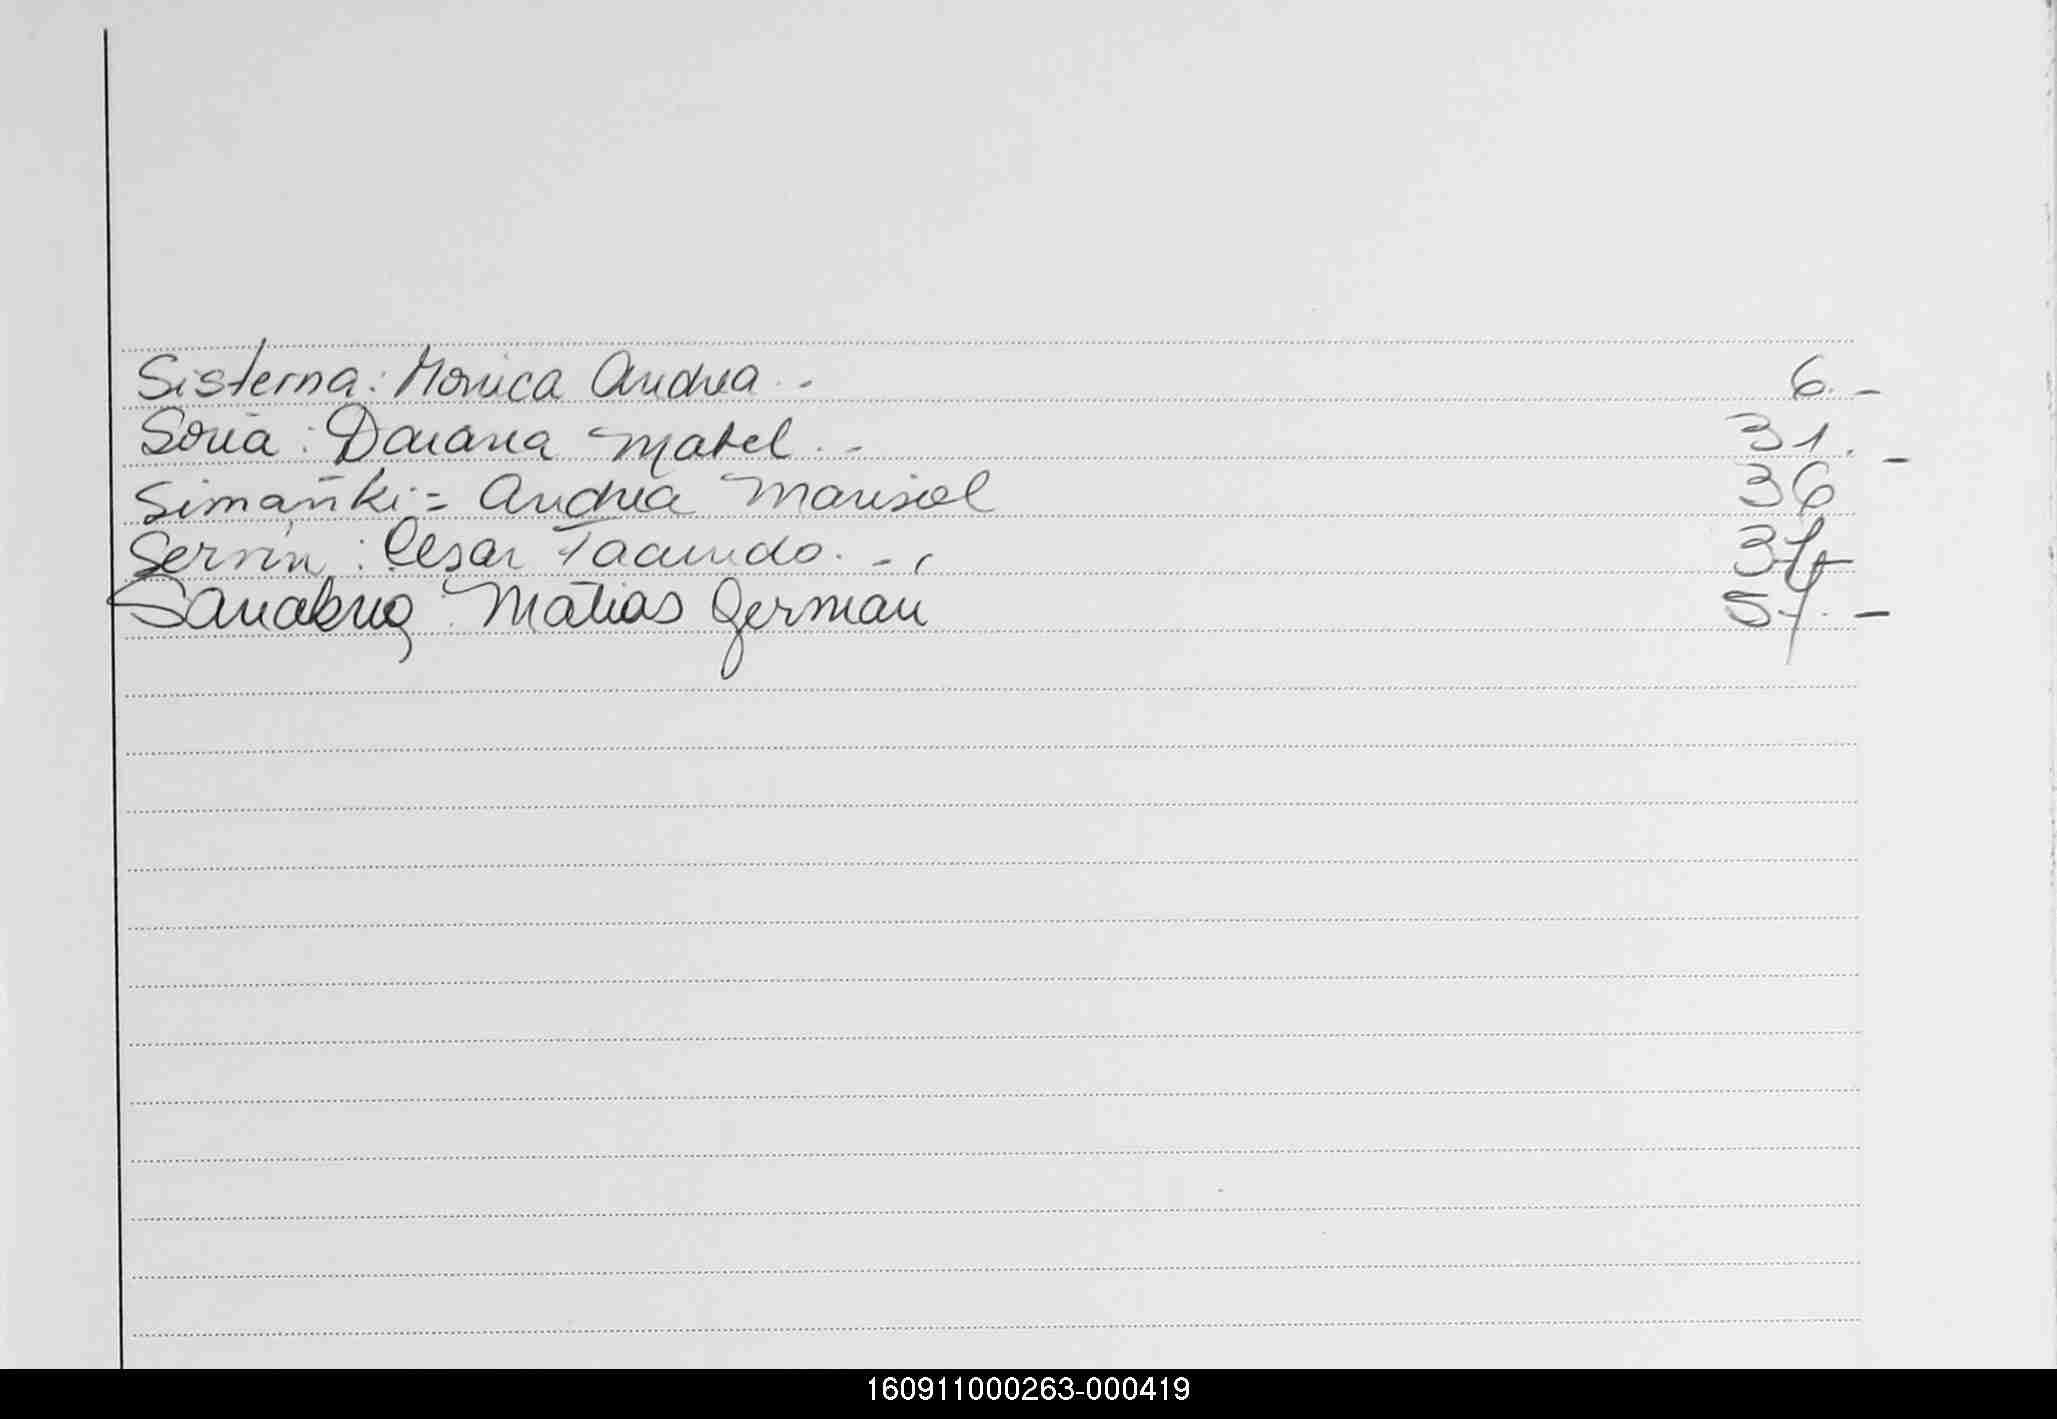 Sisterna: Monica Andrea. - 6. -
Soria: Daiana Mabel. - 31. -
Simañki = Andrea Marisol 36
Servín: Cesar Facundo. - 37
Sanabria: Matias German 57. -
160911000263-000419